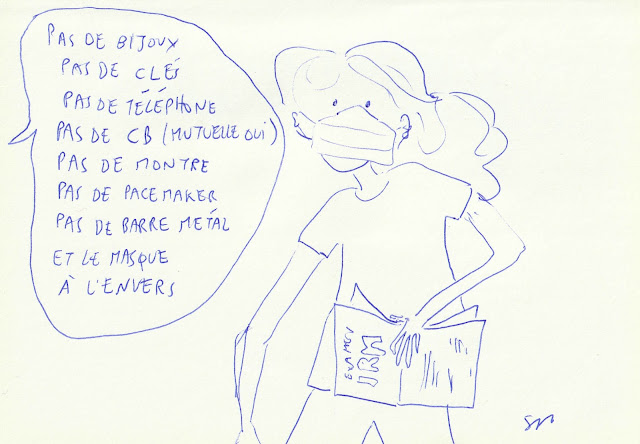 PAS DE BIJOUX
PAS DE CLÉS
PAS DE TÉLÉPHONE
PAS DE CB (MUTUELLE OUI)
PAS DE MONTRE
PAS DE PACEMAKER
PAS DE BARRE MÉTAL
ET LE MASQUE
À L'ENVERS
EXAMEN
IRM